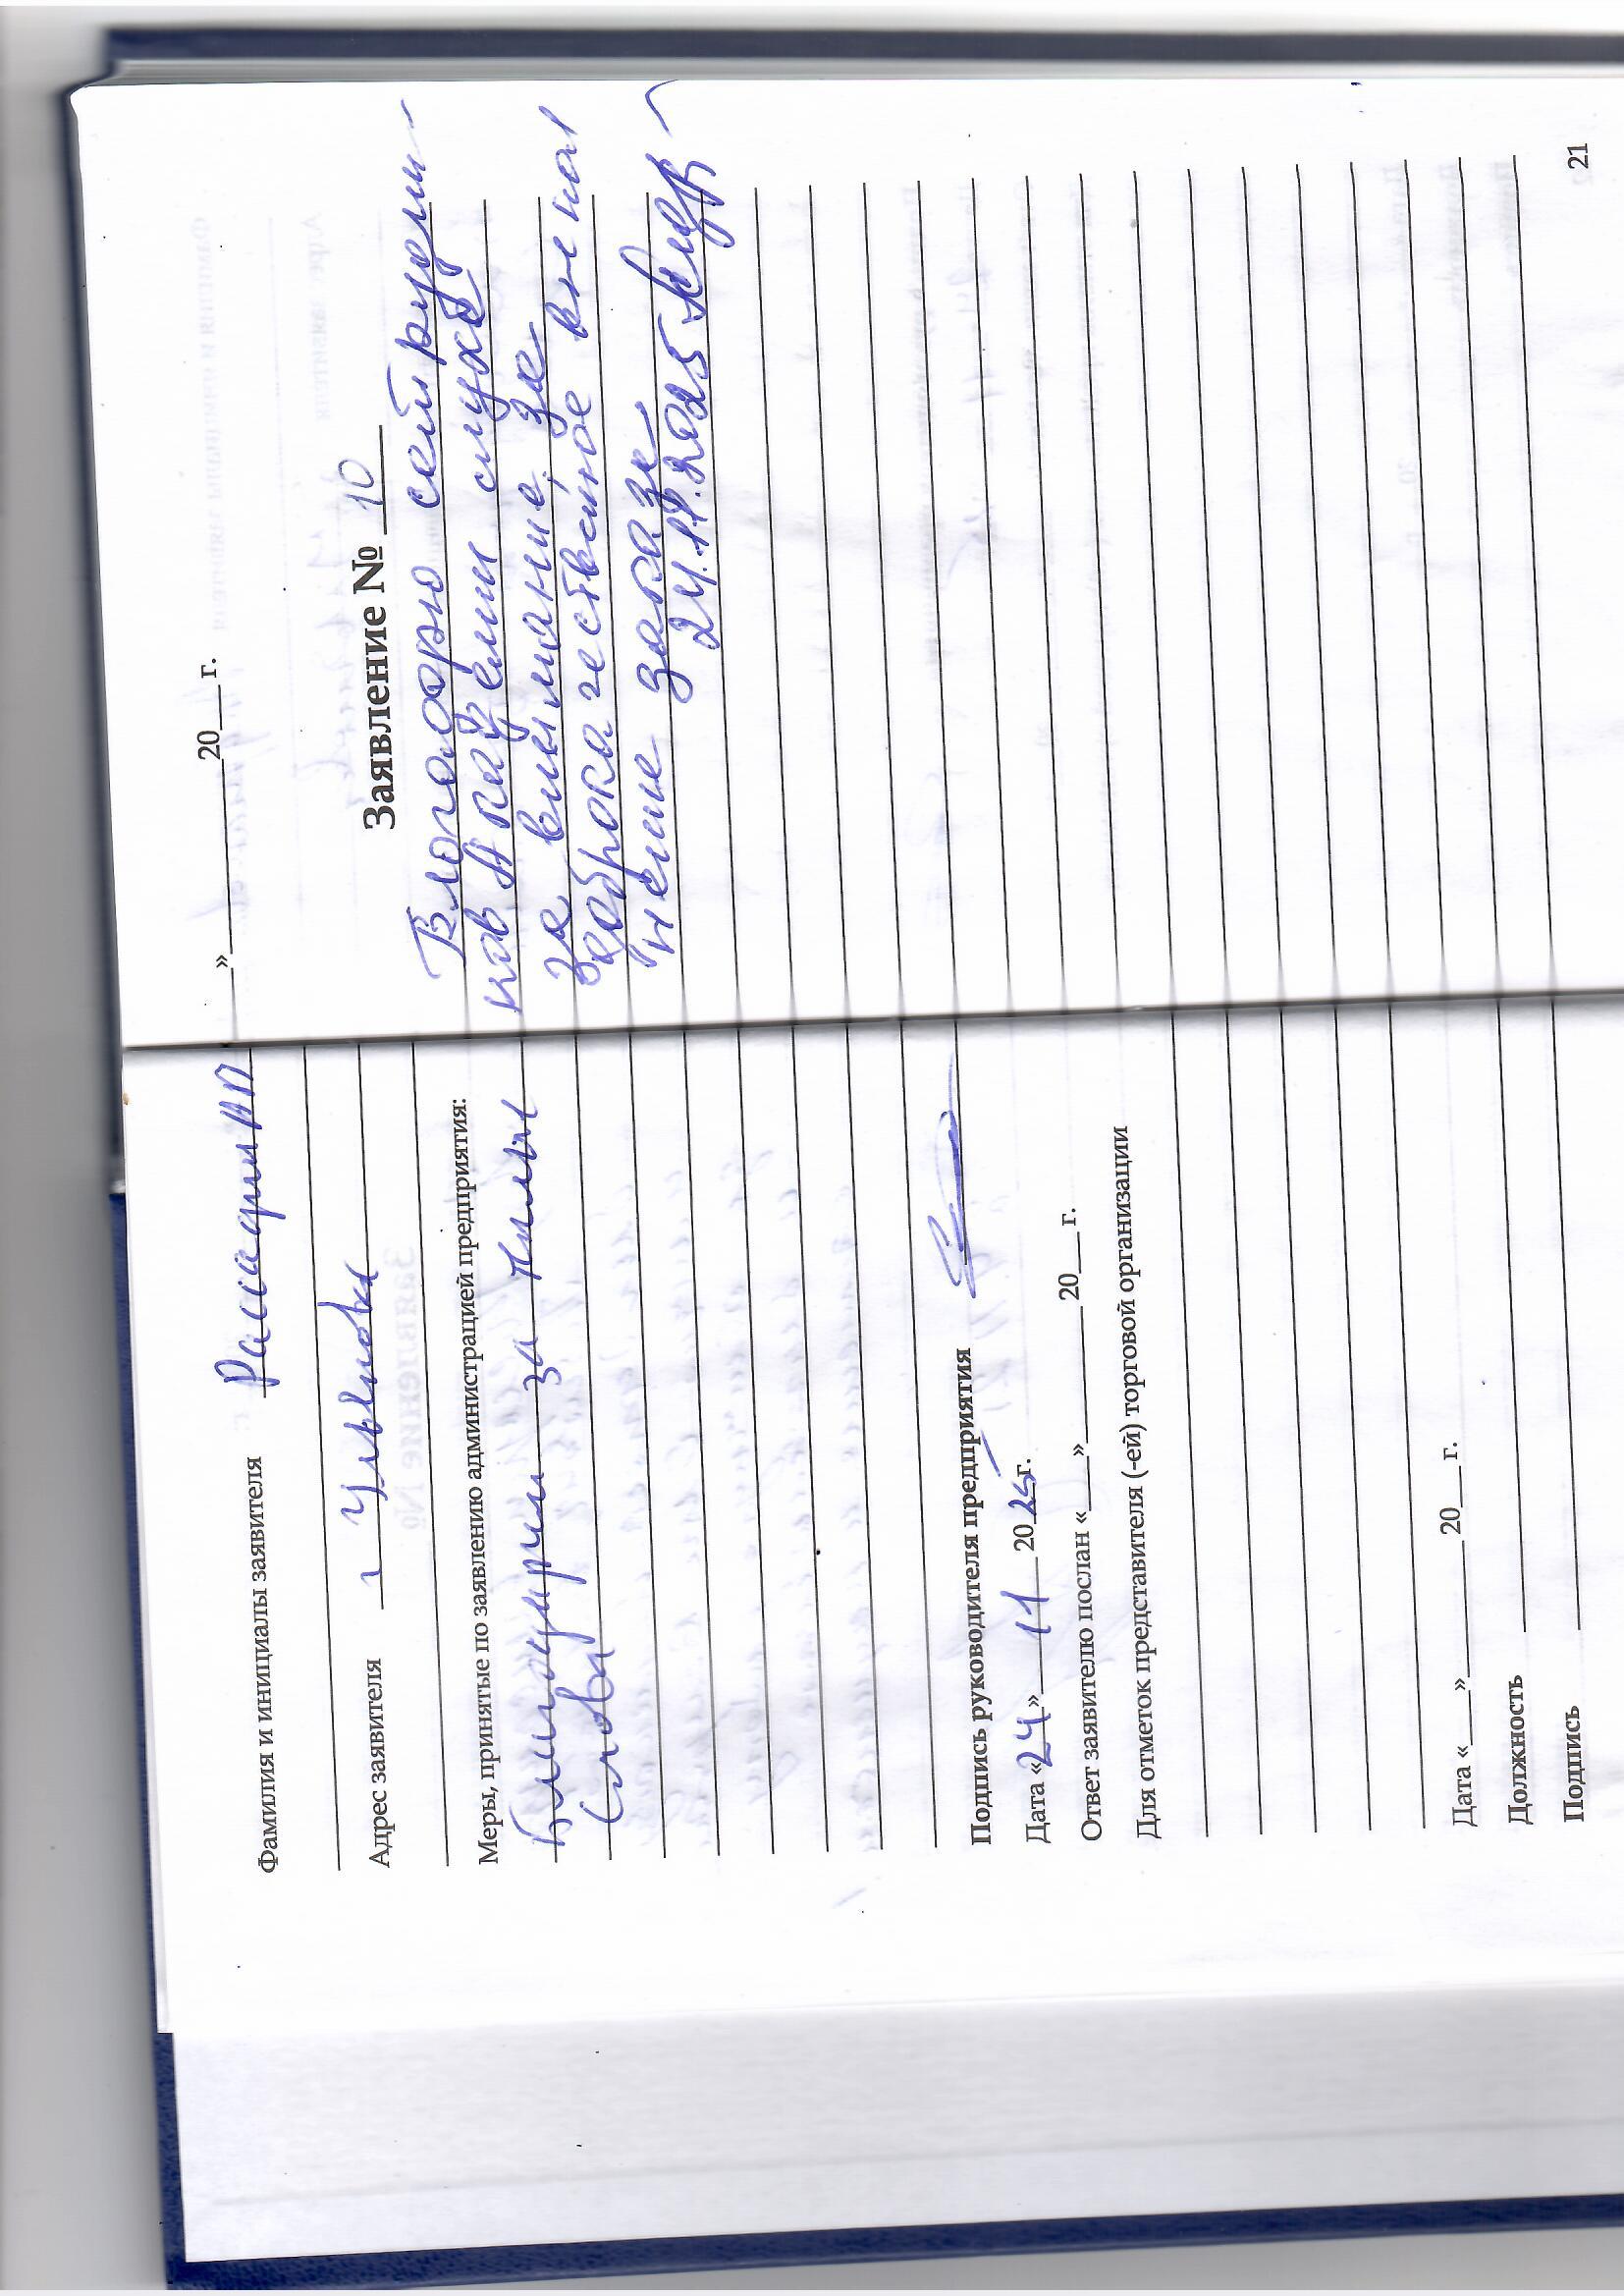 Фамилия и инициалы заявителя Рассадин АП
Адрес заявителя г Ульяновск
Меры, принятые по заявлению администрацией предприятия:
Благодарим за тёплые
слова
Подпись руководителя предприятия
Дата «24» 11 2025г.
Ответ заявителю послан «___»________20__г.
Для отметок представителя (-ей) торговой организации
Дата «___»________20__г.
Должность
Подпись
»________20__г.
Заявление № 10
Благодарю сотрудни-
ков служб
за внимание, за
доброкачественное выпол
нение заказа
24.11.2025
21